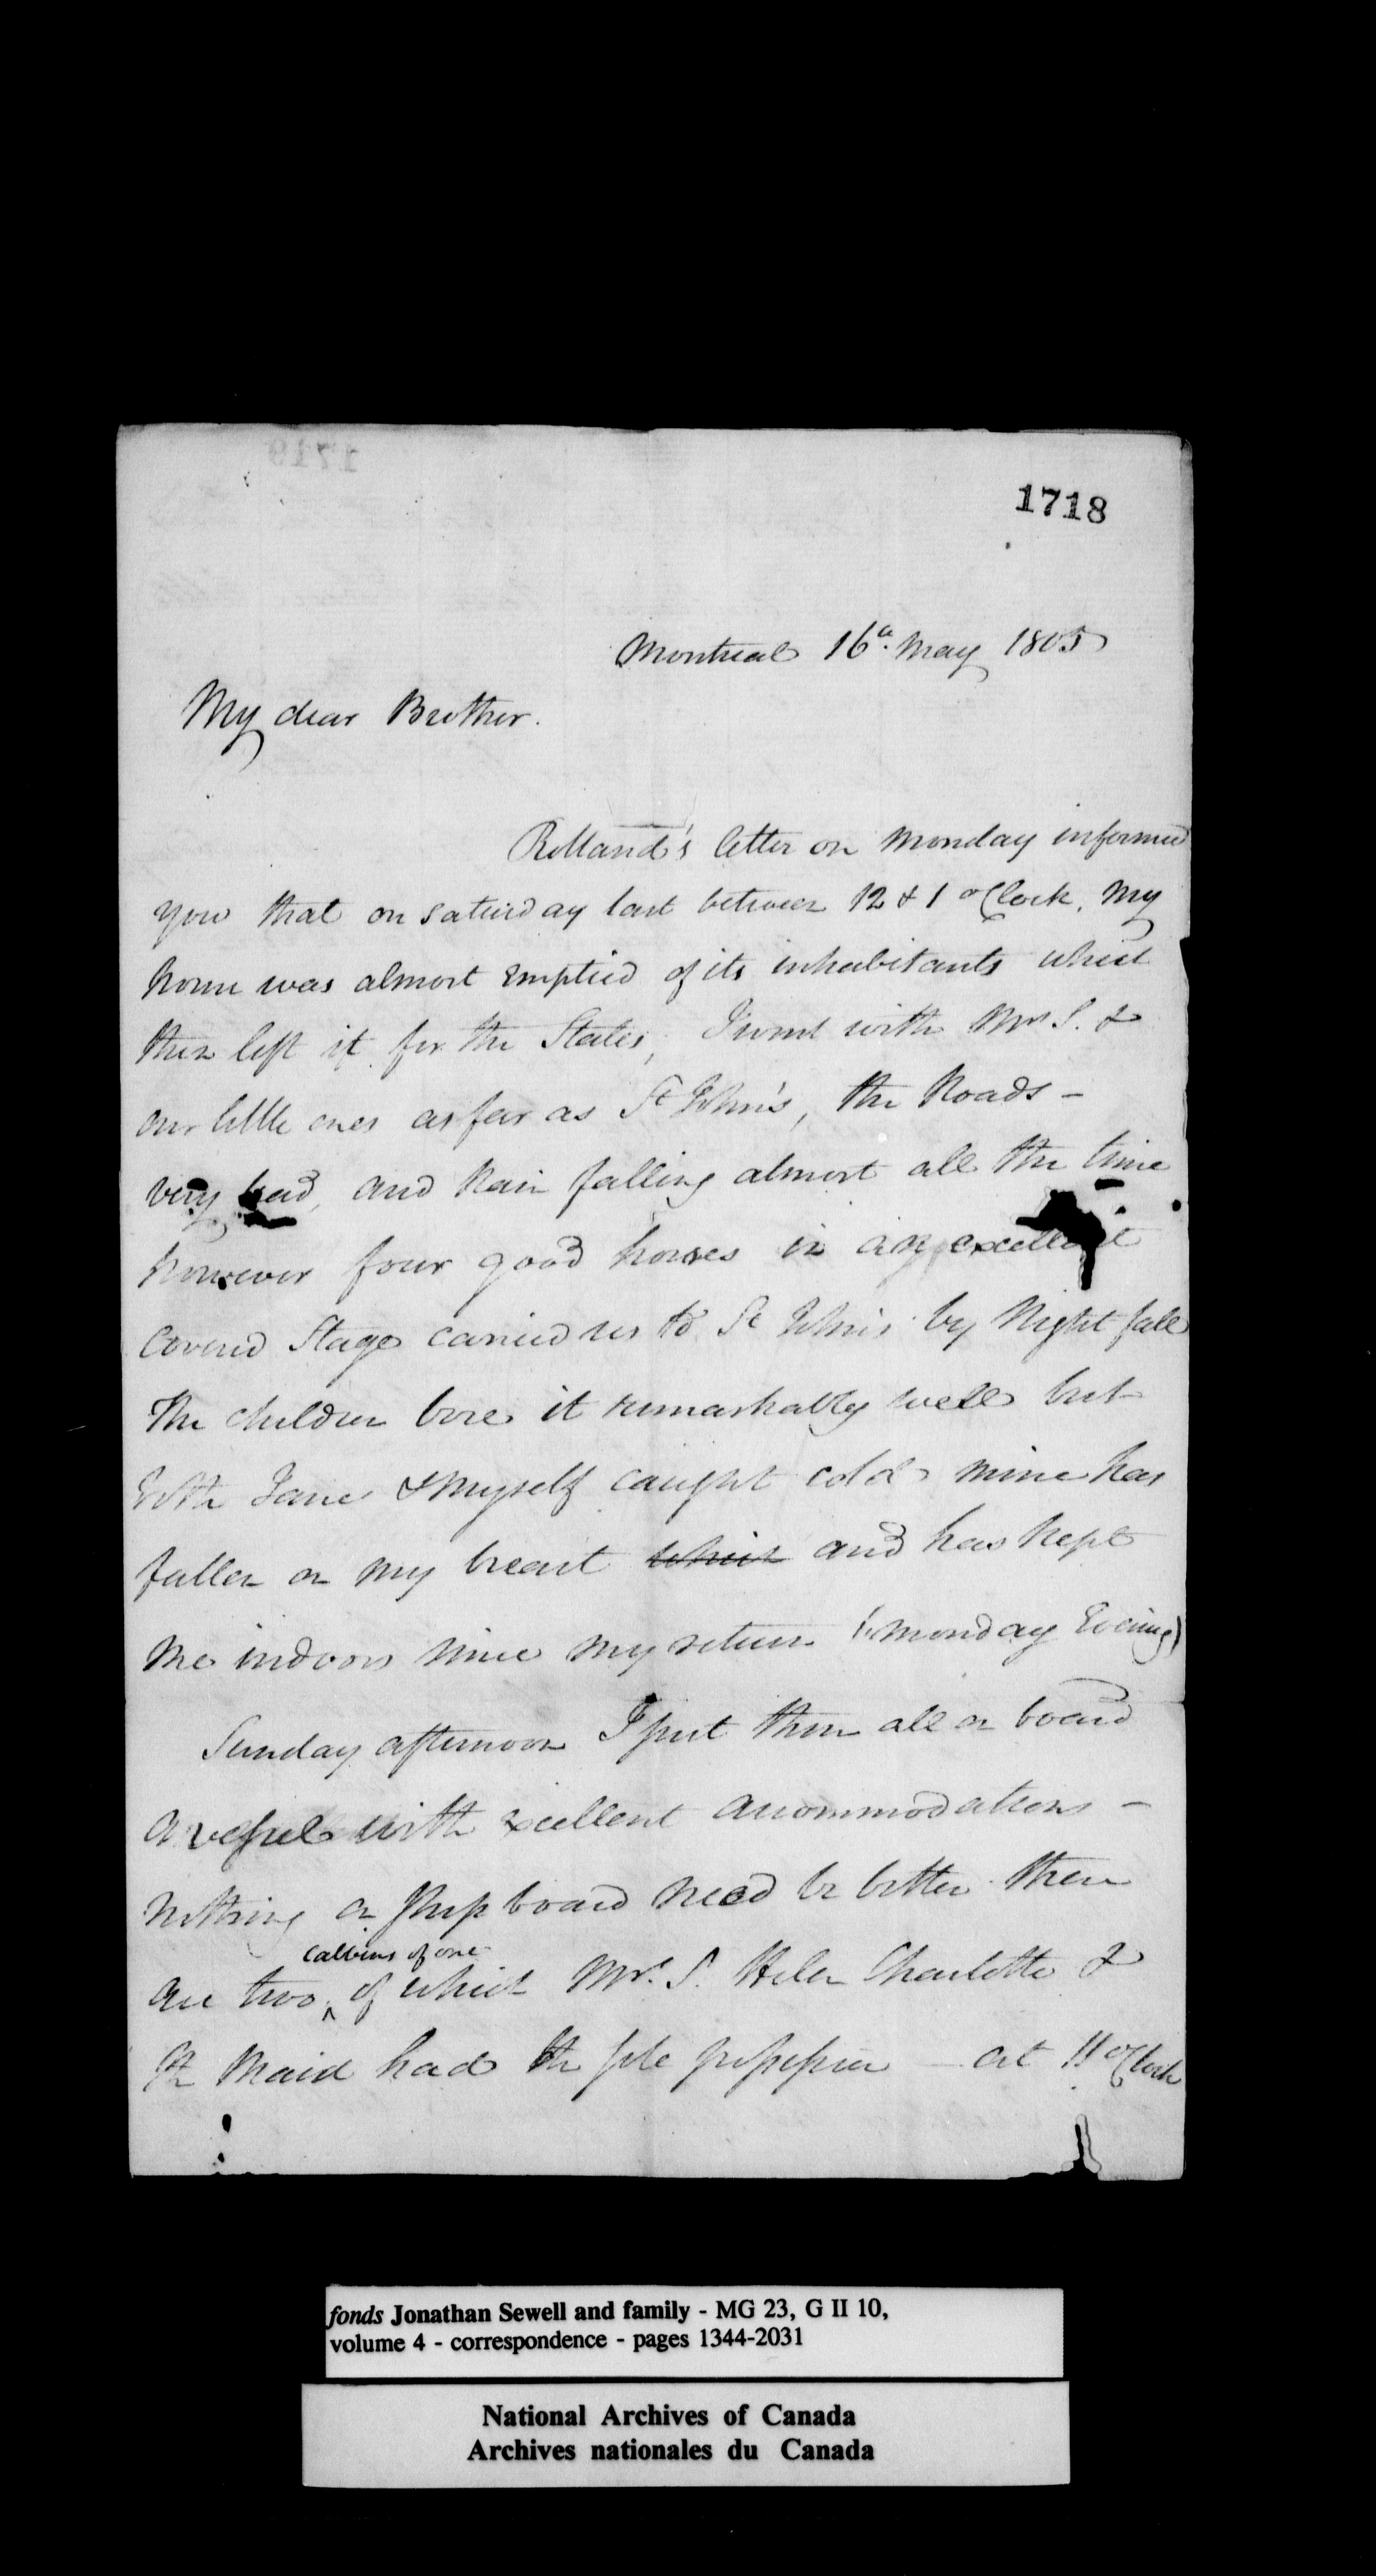 1718
Montreal 16th. May 1805
My dear Brother.
Rolland's letter on Monday informed
you that on saturday last between 12 & 1 oClock, my
house was almost emptied of its inhabitants which
then left it for the States, I went with Mrs S. &
our little ones as far as St John's, the Roads -
very bad, and Rain falling almost all the time
however four good horses in an excellent
Covered Stage carried us to St John's by Night fall
The children bore it remarkably well but
both Jane & myself caught cold mine has
fallen on my breast which and has kept
me indoors since my return (Monday Evening)
Sunday afternoon I put them all on board
a vessel with excellent accommodations -
nothing on Ship board need be better there
are two cabbins of one of which Mrs. S. Helen Charlotte &
the Maid had the sole possession at 11 oClock
fonds Jonathan Sewell and family - MG 23, G II 10,
volume 4 - correspondence - pages 1344-2031
National Archives of Canada
Archives nationales du Canada